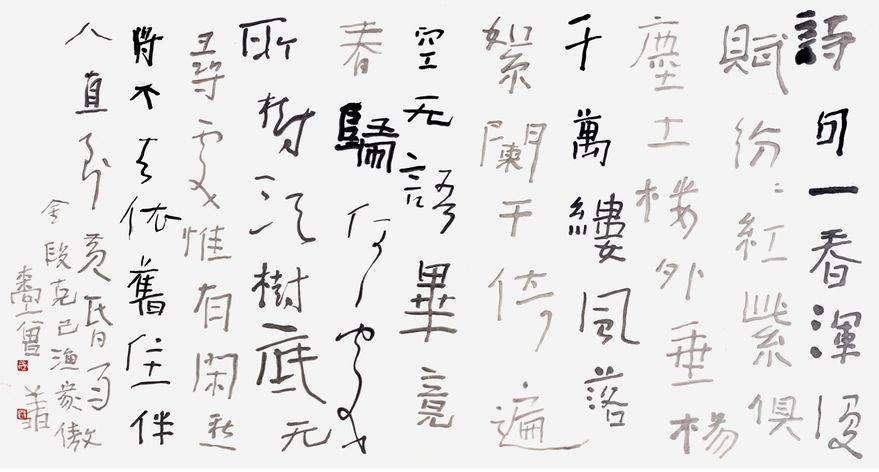 詩句一春渾漫
賦紛〻紅紫俱
塵土樓外垂楊
千萬縷風落
絮闌干倚遍
空无語畢竟
春歸何處
所樹頭樹底无
尋處惟有閑愁
將不去依舊住伴
人直到黄昏雨
金段克己漁家傲